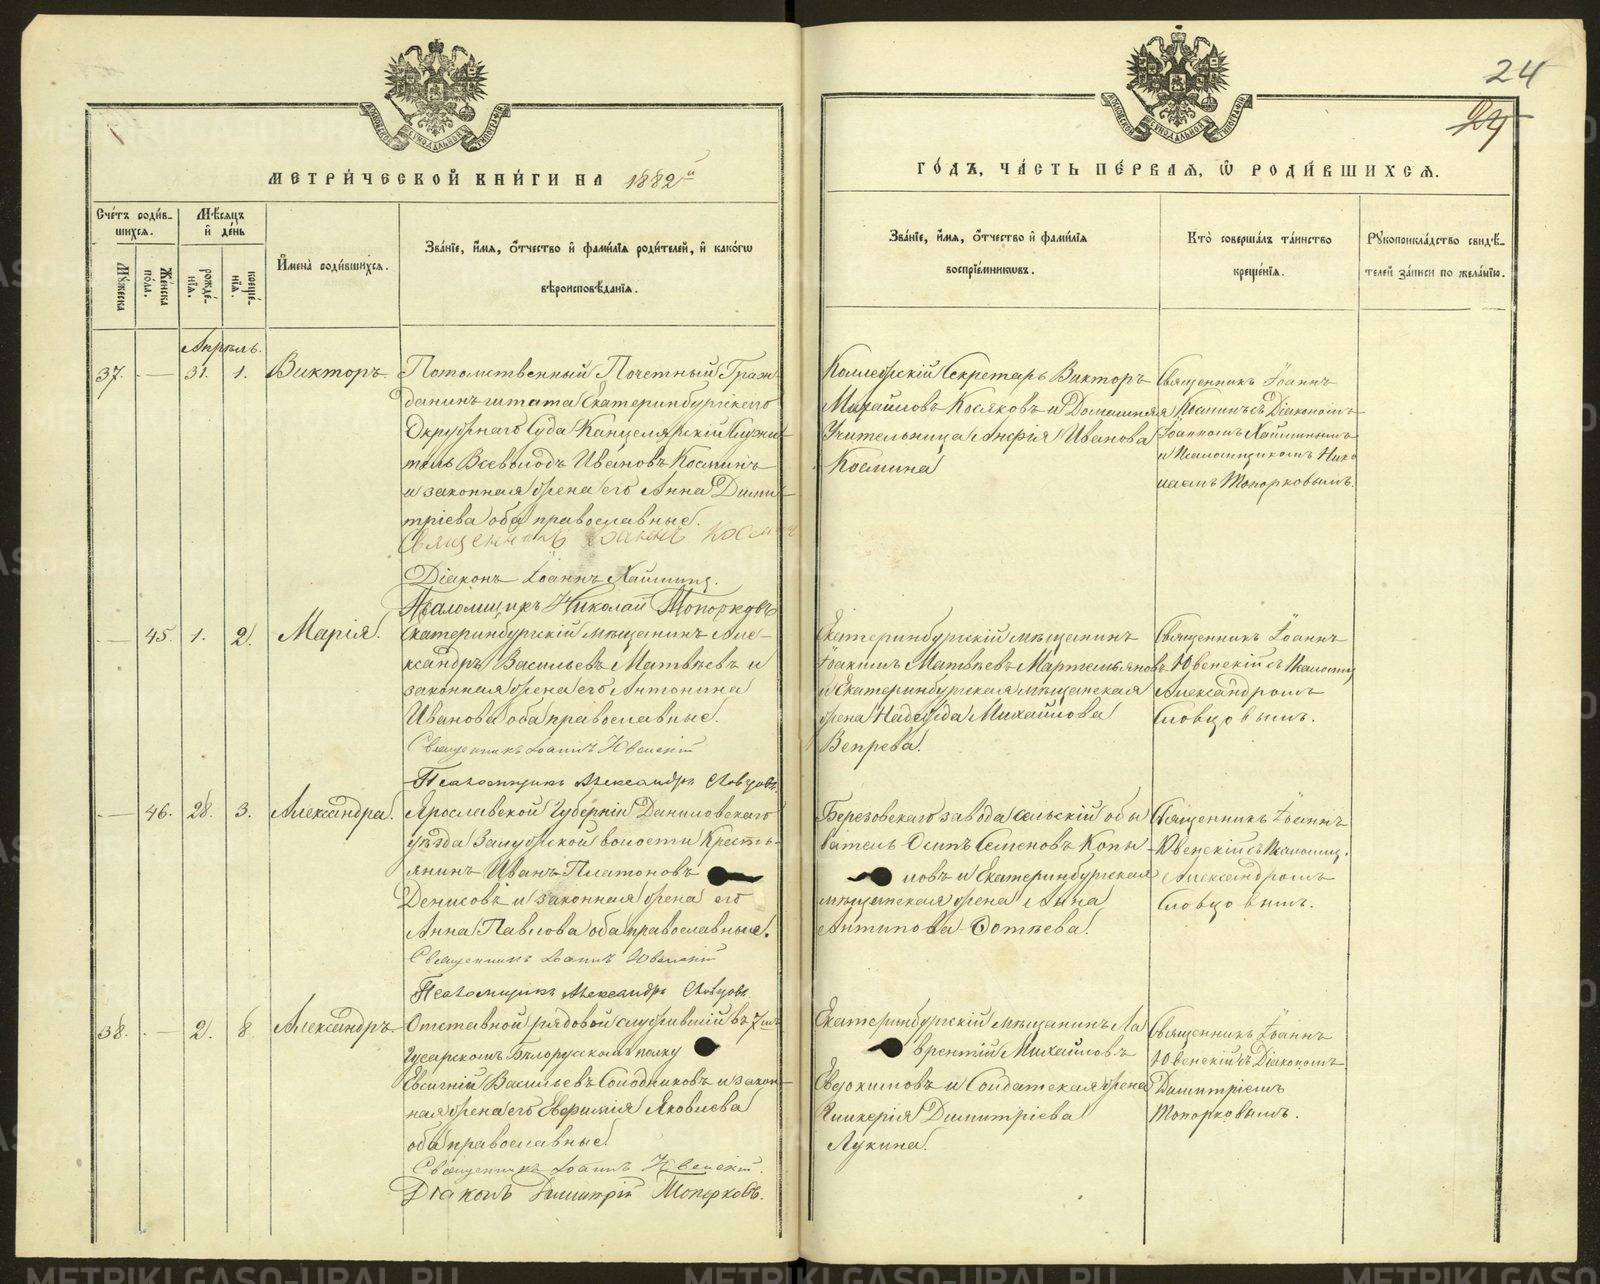 24
24
МЕТРИ́ЧЕСКОЙ КНИ́ГИ НА 1882й
ГО́ДЪ, ЧА́СТЬ ПЕ́РВАЯ, Ѡ РОДИ́ВШИХСЯ.
Сче́тъ роди́в-
шихся.
Мѣ́сяцъ
и́ де́нь
Му́жеска
Же́нска
по́ла.
рожде́-
нїя.
креще́-
нїя.
И́мена̀ роди́вшихся.
Зва́нїе, и́мя, о́тчество и́ фами́лїя роди́телей, и́ како́гѡ
вѣроисповѣ́данїя.
Зва́нїе, и́мя, о́тчество и́ фами́лїя
воспрїе́мниковъ.
Кто̀ соверша́лъ та́инство
креще́нїя.
Рꙋкоприкла́дство свидѣ́-
телей за́писи по жела́нїю.
Апрѣль.
37. — 31. 1. Викторъ.
Потомственный Почетный Граж-
данинъ штата Екатеринбургскаго
Окружнаго Суда Канцелярскій Служи-
тель Всеволодъ Ивановъ Косминъ
и законная жена его Анна Дими-
тріева оба православные.
Священникъ Іоаннъ Косминъ
Діаконъ Іоаннъ Хлыпинъ.
Псаломщикъ Николай Топорковъ
Коллежскій Секретарь Викторъ
Михайловъ Косяковъ и Домашняя
Учительница Анфія Иванова
Космина
Священникъ Іоаннъ
Косминъ съ Діакономъ
и Псаломщикомъ Нико-
лаемъ Топорковымъ.
— 45. 1. 2. Марія.
Екатеринбургскій мѣщанинъ Але-
ксандръ Васильевъ Матвѣевъ и
законная жена его Антонина
Иванова оба православные.
Священникъ Іоаннъ Ювенскій
Псаломщикъ Александръ Словцовъ.
Екатеринбургскій мѣщанинъ
Іоакимъ Матвѣевъ Мартемьяновъ
и Екатеринбургская мѣщанская
жена Надежда Михайлова
Вепрева.
Священникъ Іоаннъ
Ювенскій съ Псаломщ.
Александромъ
Словцовымъ.
— 46. 28. 3. Александра.
Ярославской Губерніи Даниловскаго
уѣзда волости Кресть-
янинъ Иванъ Платоновъ
Денисовъ и законная жена его
Анна Павлова оба православные.
Священникъ Іоаннъ Ювенскій
Псаломщикъ Александръ Словцовъ
Березовскаго завода сельскій обы-
ватель Осипъ Семеновъ Копы-
ловъ и Екатеринбургская
мѣщанская жена Анна
Антипова Фотѣева.
Священникъ Іоаннъ
Ювенскій съ Псаломщ.
Александромъ
Словцовымъ.
38. — 2. 8. Александръ
Отставной рядовой служившій въ 7мъ
Гусарскомъ Бѣлорусскомъ полку
Евгеній Васильевъ Солодниковъ и закон-
ная жена его Евфимія Яковлева
оба православные.
Священникъ Іоаннъ Ювенскій.
Діаконъ Димитрій Топорковъ.
Екатеринбургскій мѣщанинъ Ла-
врентій Михайловъ
Евдокимовъ и Солдатская жена
Гликерія Димитріева
Лукина.
Священникъ Іоаннъ
Ювенскій съ Діакономъ
Димитріемъ
Топорковымъ.